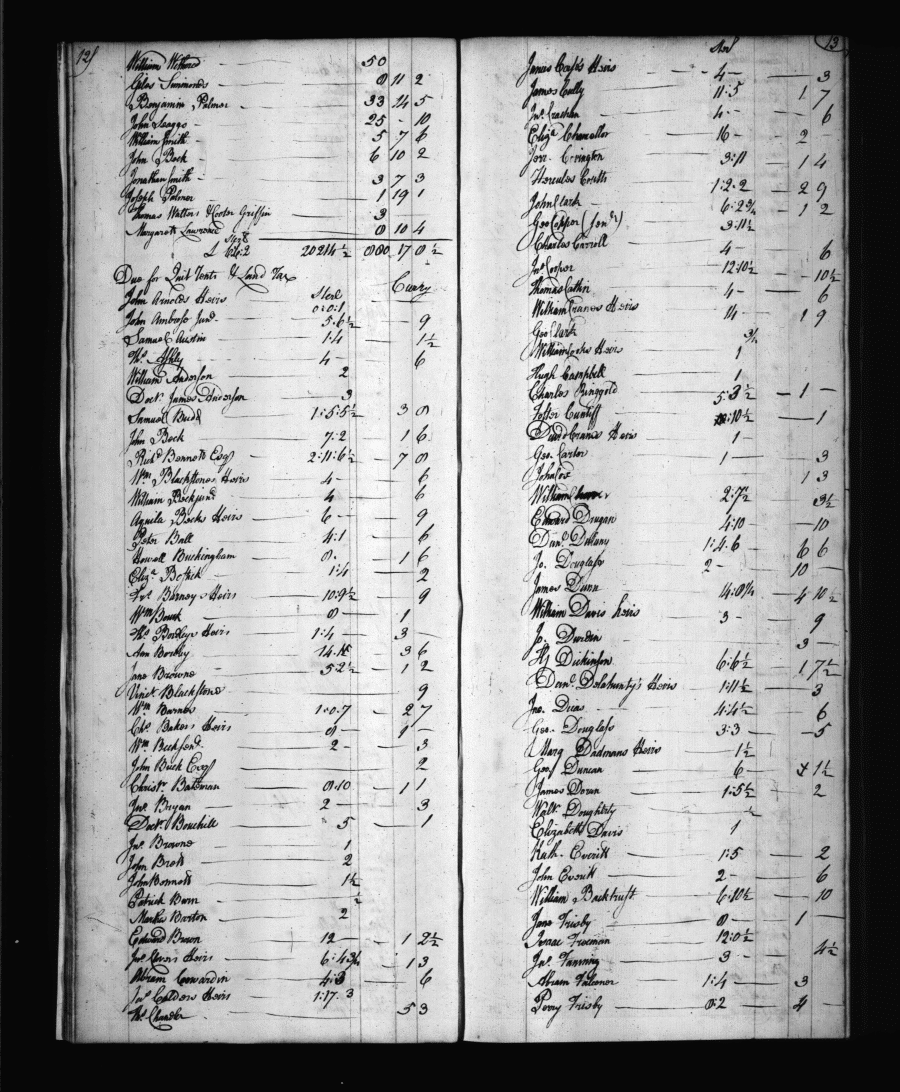 12
William Withers 50
Giles Simmonds 8 11 2
Benjamin Palmer 33 14 5
John Scaggs 25 - 10
William Smith - 5 7 6
John Beck 6 10 2
Jonathan Smith - 3 7 3
Joseph Palmer 1 19 1
Thomas Watters Hector Griffin 3
Margarett Lawrence 8 10 4
20214½ 17 8½
Due for Quit Rents & Land Tax
Sterl Curry
John Arnolds Heirs 0:0:1
John Ambrose Junr 5.6½ 9
Samuel Austin 1:4 1½
Thos Ashly 4 - 6
William Anderson 2
Doctr James Anderson 3
Samuel Budd 1:5:5½ 3 8
John Beck 7:2 1 6
Richd Bennett Esqr 2:11:6½ 7 8
Wm Blackstones Heirs 4 - 6
William Beckjunr 4 6
Aquila Becks Heirs 6 - 9
Peter Ball 4:1 6
Howell Buckingham 8. 1 6
Eliza Bostick 1:4 2
Barneys Heirs 10:9½ 9
Wm 8 - 1
Thos Bordleys Heirs 1:4 - 3
Ann Bowdy 14. 3 6
Jane Browne 5:2½ 1 2
Blackstone 9
Wm Barnes 1:0:7 2 7
Chs Bakers Heirs 8 -
Wm Beckford 2 - 3
John Buck Esqr 2
Christr Bateman 8:10 1 1
Jas Bryan 2 - 3
Doctr Bouchill 5 1
Jno Browne 1
John Brett 2
John Bennett 1½
Patrick Burn ½
Markus Barton 2
Edward Brown 12 1 2½
Heirs 6:4¾ 1 3
Abram Cowardin 4:3 6
Jno Calders Heirs 1:17:3
Thos Chandler 5 3
13
Sterl
James Cass's Heirs 4 - 3
James Cully 11:5 1 7
Jno Crashan 4 - 6
Eliza Chancellor 16 - 2 -
Jerr. Covington 3:11 1 4
Hercules Coutts 1:2:2 2 9
John Clark 6:2¾ 1 2
Geo Copper (Senr) 3:11½
Charles Carroll 4 - 6
Jno Cooper 12:10½ 10½
Thomas 4 - 6
William Cranes Heirs 14 1 9
Geo Clark ¾
William Heirs 1
Hugh Campbell 1
Charles Ringgold 5:3½ 1 -
Foster Cuntiff :10½ 1
David Heirs 1 -
Geo. Carter 1 3
John 1 3
William 2:7½ 3½
Edward Drugan 4:10 10
Danl Dulany 1:4:6 6 6
Jo. Douglass 2 - 10 -
James Dunn 14:8¼ 4 10½
William Davis heirs 3 - 9
Jo. Durden 3 -
Dickinson 6:6½ 1 7½
Danl Dolahunty's Heirs 1:11½ 3
Jno. Dicas 4:4½ 6
Geo. Douglass 3:3 5
Mary Dedmans Heirs 1½
Geo Duncan 6 - 1½
James Doran 1:5½ 2
Walt. Doughtrty
Elizabeth Davis 1
Kath. Everitt 1:5 2
John Everitt 2 - 6
William 6:10½ 10
Jane Frisby 8 - 1 -
Isaac Freeman 12:0½
Jno. Fanning 3 - 4½
Abram Falconer 1:4 3
Perry Frisby 8:2 4